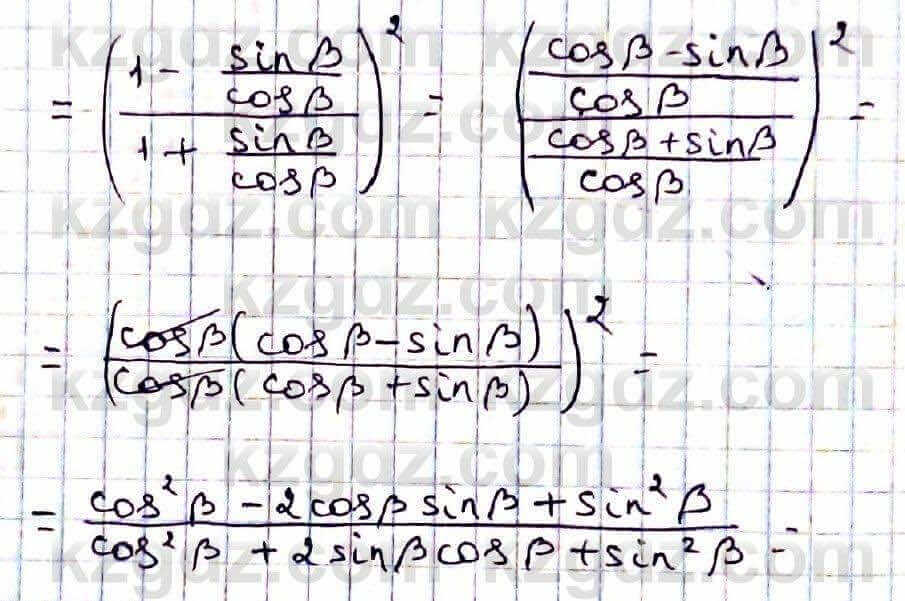 = ((1 - sinβ/cosβ)/(1 + sinβ/cosβ))² = (((cosβ - sinβ)/cosβ)/((cosβ + sinβ)/cosβ))² =
= ((cosβ(cosβ - sinβ))/(cosβ(cosβ + sinβ)))² =
= (cos²β - 2cosβ sinβ + sin²β)/(cos²β + 2sinβcosβ + sin²β) =
kzgdz.com kzgdz.com
kzgdz.com
kzgdz.com kzgdz.com
kzgdz.com
kzgdz.com kzgdz.com
kzgdz.com
kzgdz.com kzgdz.com